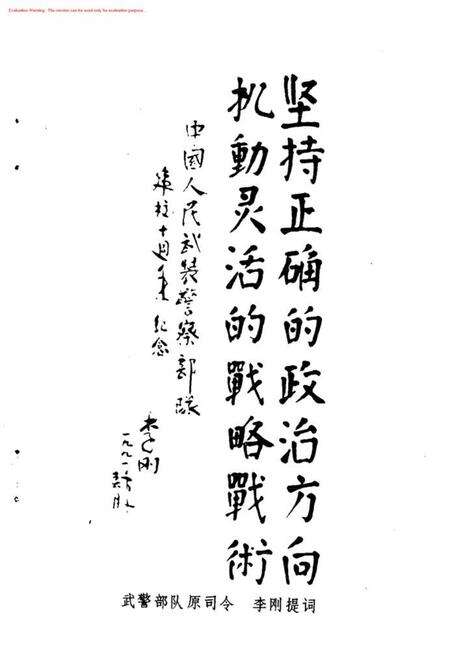 Evaluation Warning : The version can be used only for evaluation purpose...
坚持正确的政治方向
机動灵活的戰略戰術
中國人民武装警察部隊
建校十週年纪念
李刚
一九九一
武警部队原司令　李刚提词